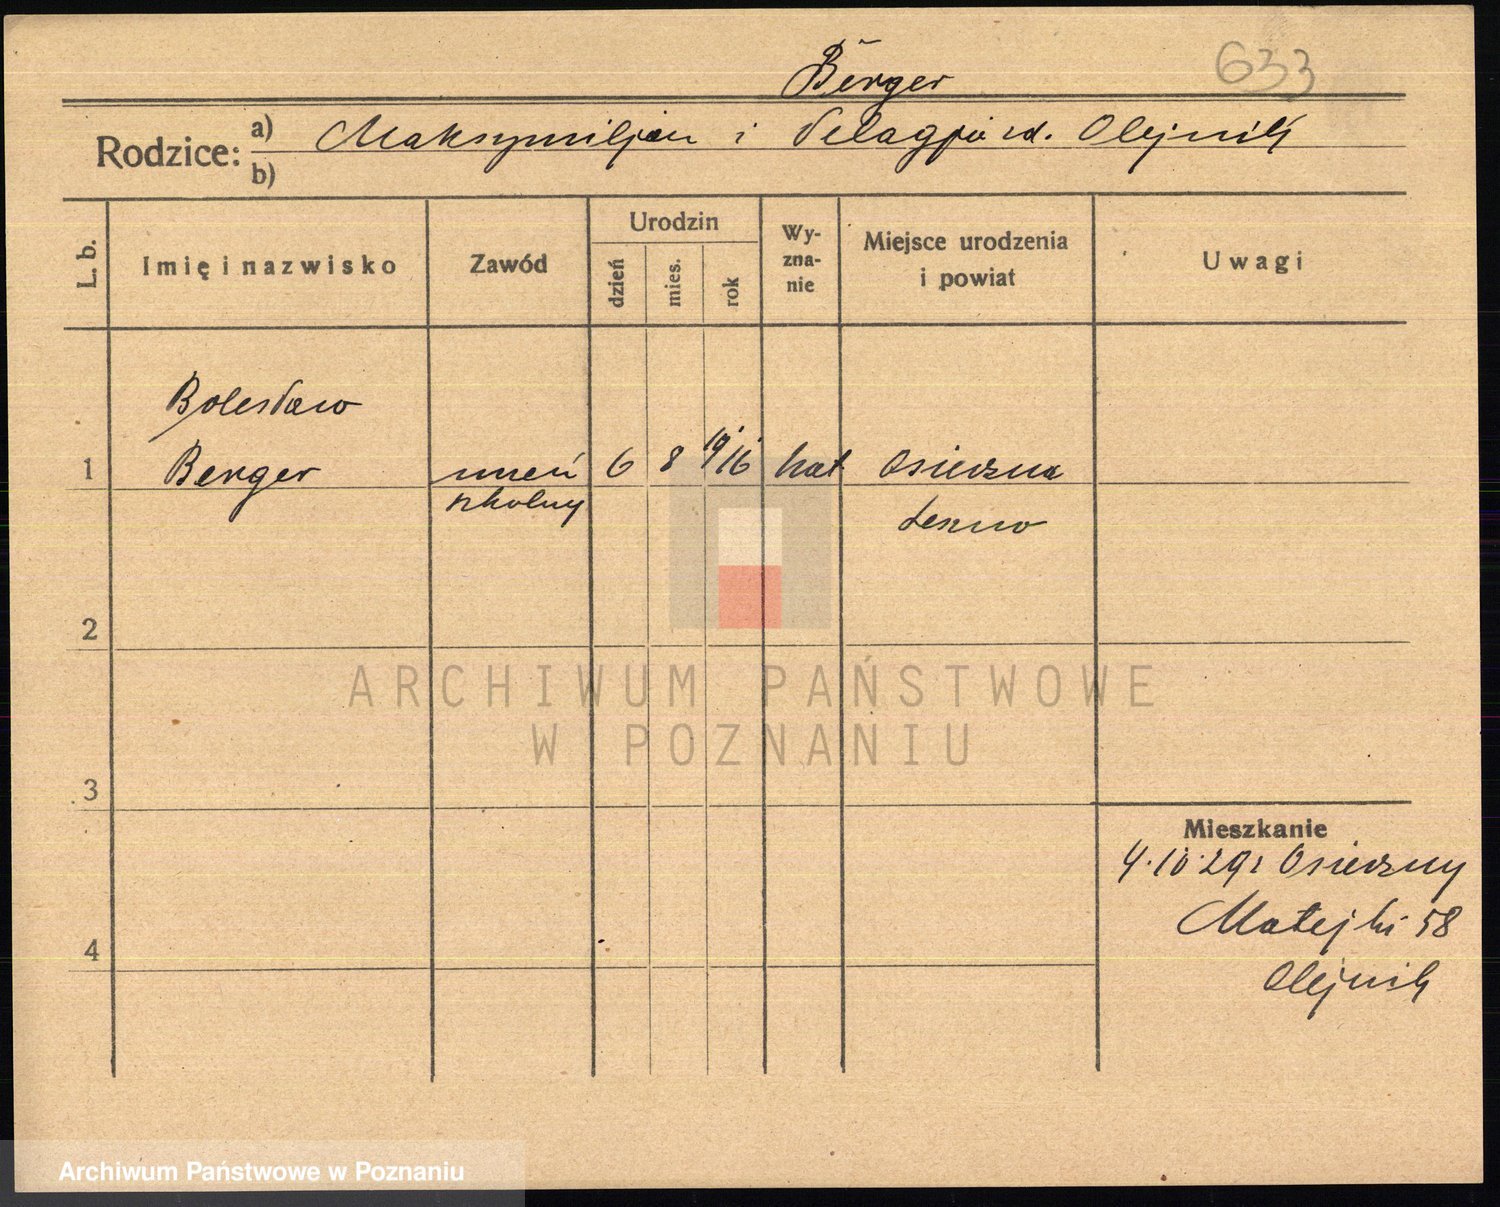 Berger
633
Rodzice: a) Maksymiljan i Pelagja rd. Olejnik
b)
L. b. Imię i nazwisko Zawód Urodzin dzień mies. rok Wy-zna-nie Miejsce urodzenia i powiat Uwagi
Bolesław
1 Berger uczeń 6 8 1916 kat Osieczna
szkolny Leszno
2
ARCHIWUM PAŃSTWOWE
W POZNANIU
3
Mieszkanie
4.10.29 Osieczny
Matejki 58
4
Olejnik
Archiwum Państwowe w Poznaniu